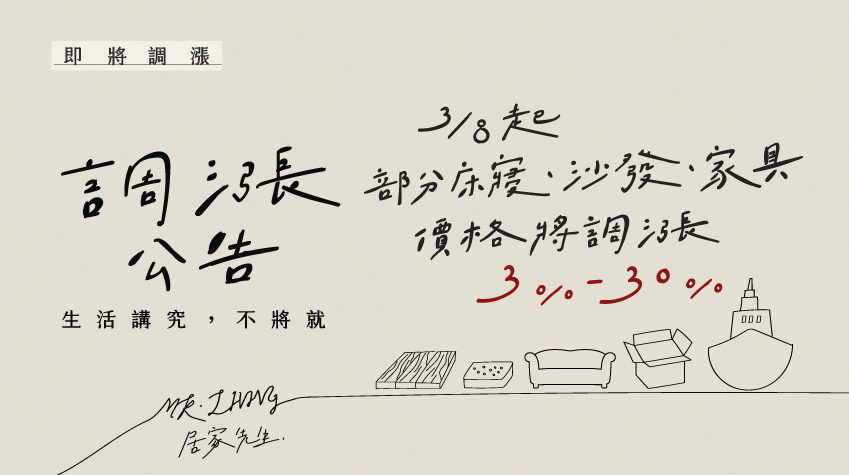 即將調漲
調漲
公告
生活講究，不將就
3/8起
部分床寢、沙發、家具
價格將調漲
3%-30%
MR. LIVING
居家先生.